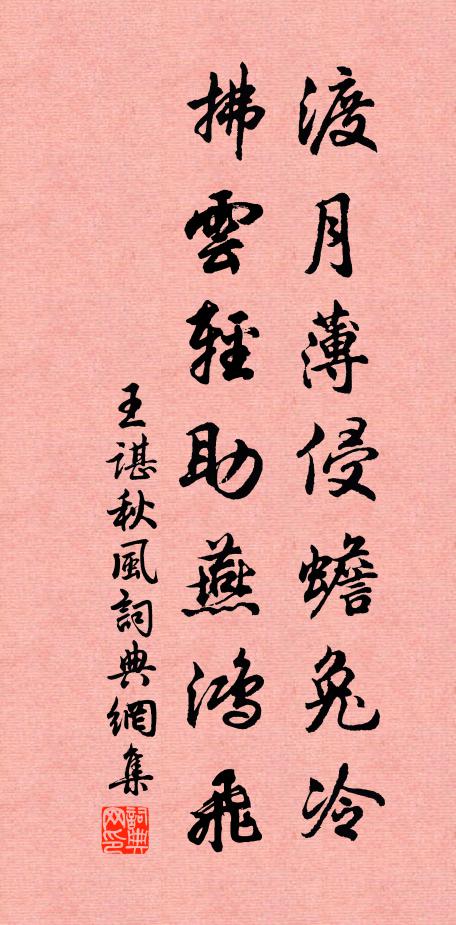 渡月薄侵蟾兔冷
拂雲輕助燕鴻飛
王諶秋風詞典網集
詞典网印